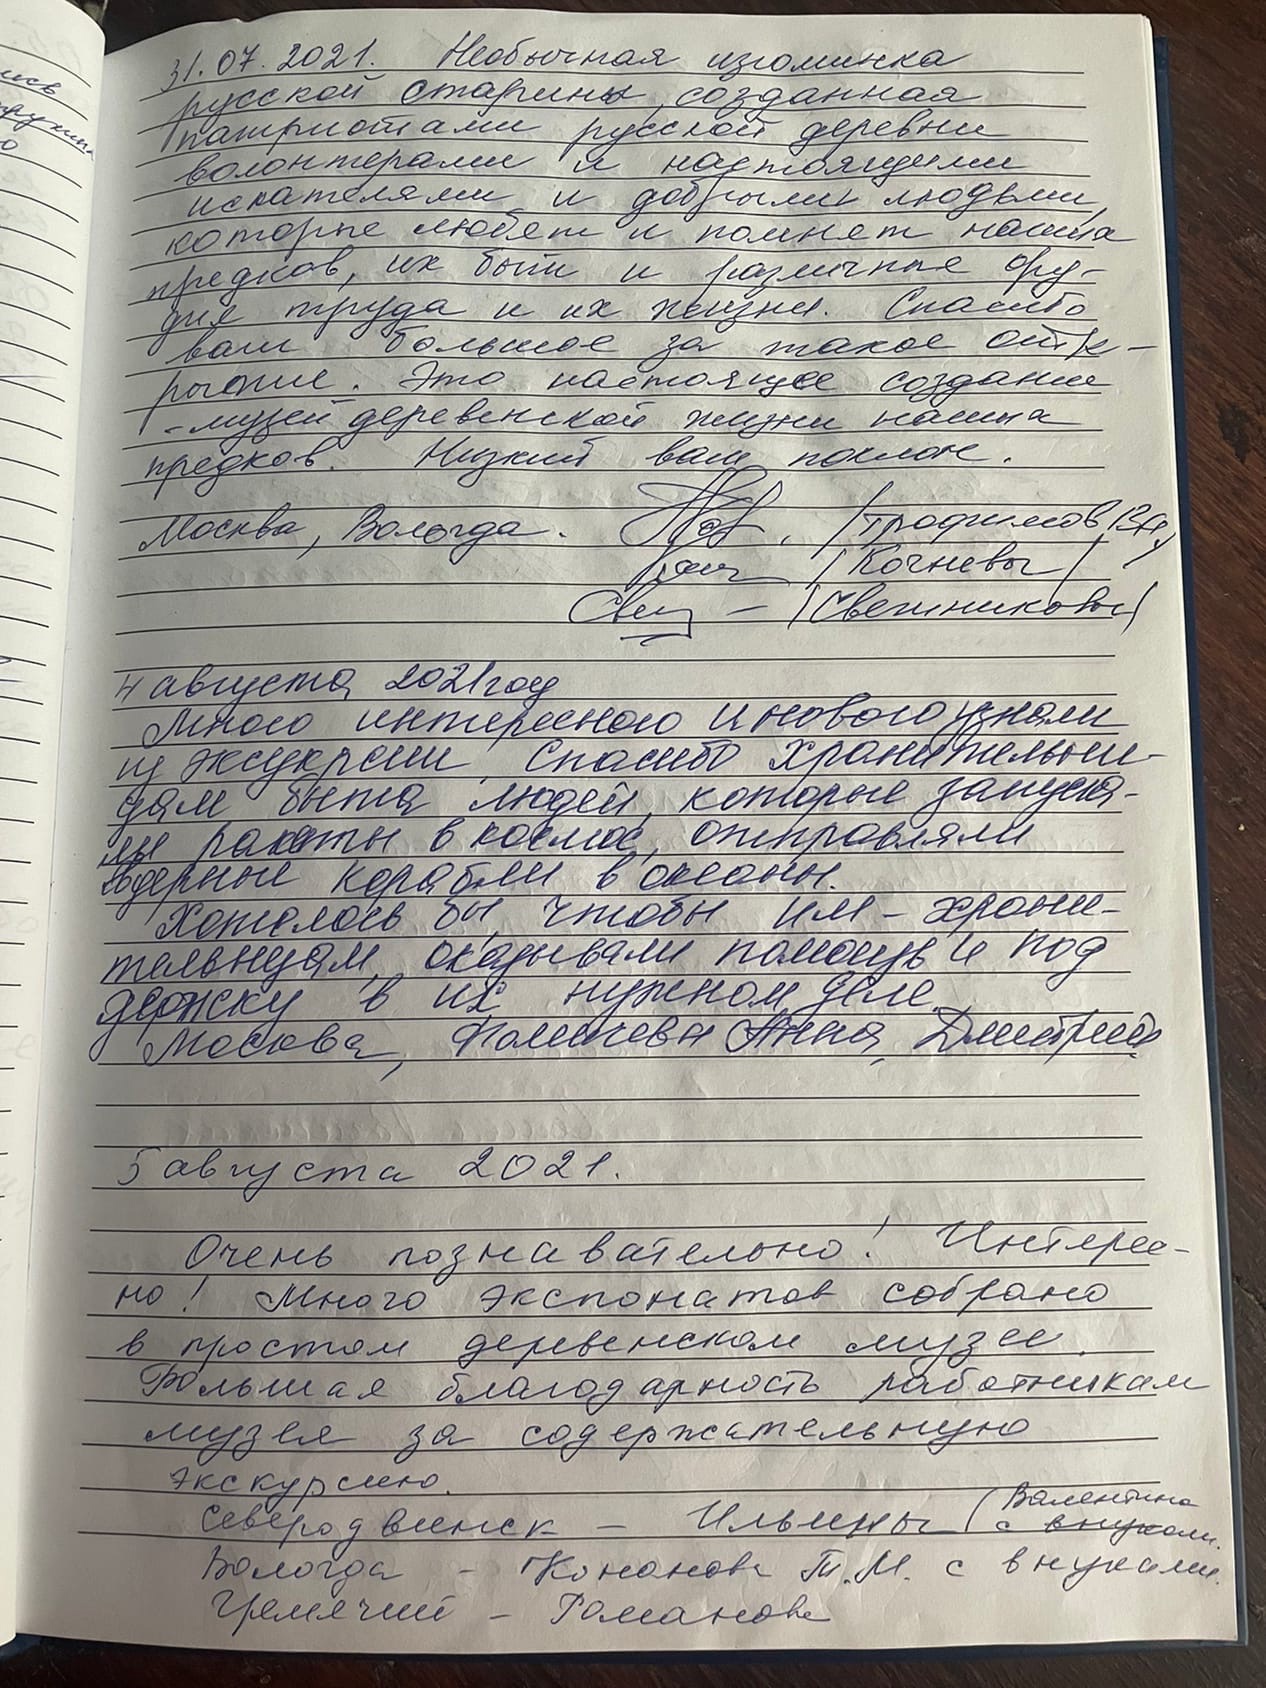 31.07.2021. Необычная изюминка
русской старины, созданная
патриотами русской деревни
волонтерами и настоящими
искателями и добрыми людьми,
которые любят и помнят наших
предков, их быт и различные ору-
дия труда и их жизни. Спасибо
вам большое за такое отк-
рытие. Это настоящее создание
- музей деревенской жизни наших
предков. Низкий вам поклон.
Москва, Вологда. /Трофимов
/Кочневы/
/Свешниковы/
4 августа 2021 год
Много интересного и нового узнали
из экскурсии. Спасибо хранительни-
цам быта людей, которые запуска-
ли ракеты в космос, отправляли
ядерные корабли в океаны.
Хотелось бы, чтобы им - храни-
тельницам, оказывали помощь и под
держку в их нужном деле.
Москва, Анна, Дмитрий
5 августа 2021.
Очень познавательно! Интерес-
но! Много экспонатов собрано
в простом деревенском музее.
Большая благодарность работникам
музея за содержательную
экскурсию.
Северодвинск - Ильины (Валентина
с внуками.
Вологда - Кононова Т.М. с внуками.
Гремячий - Романова